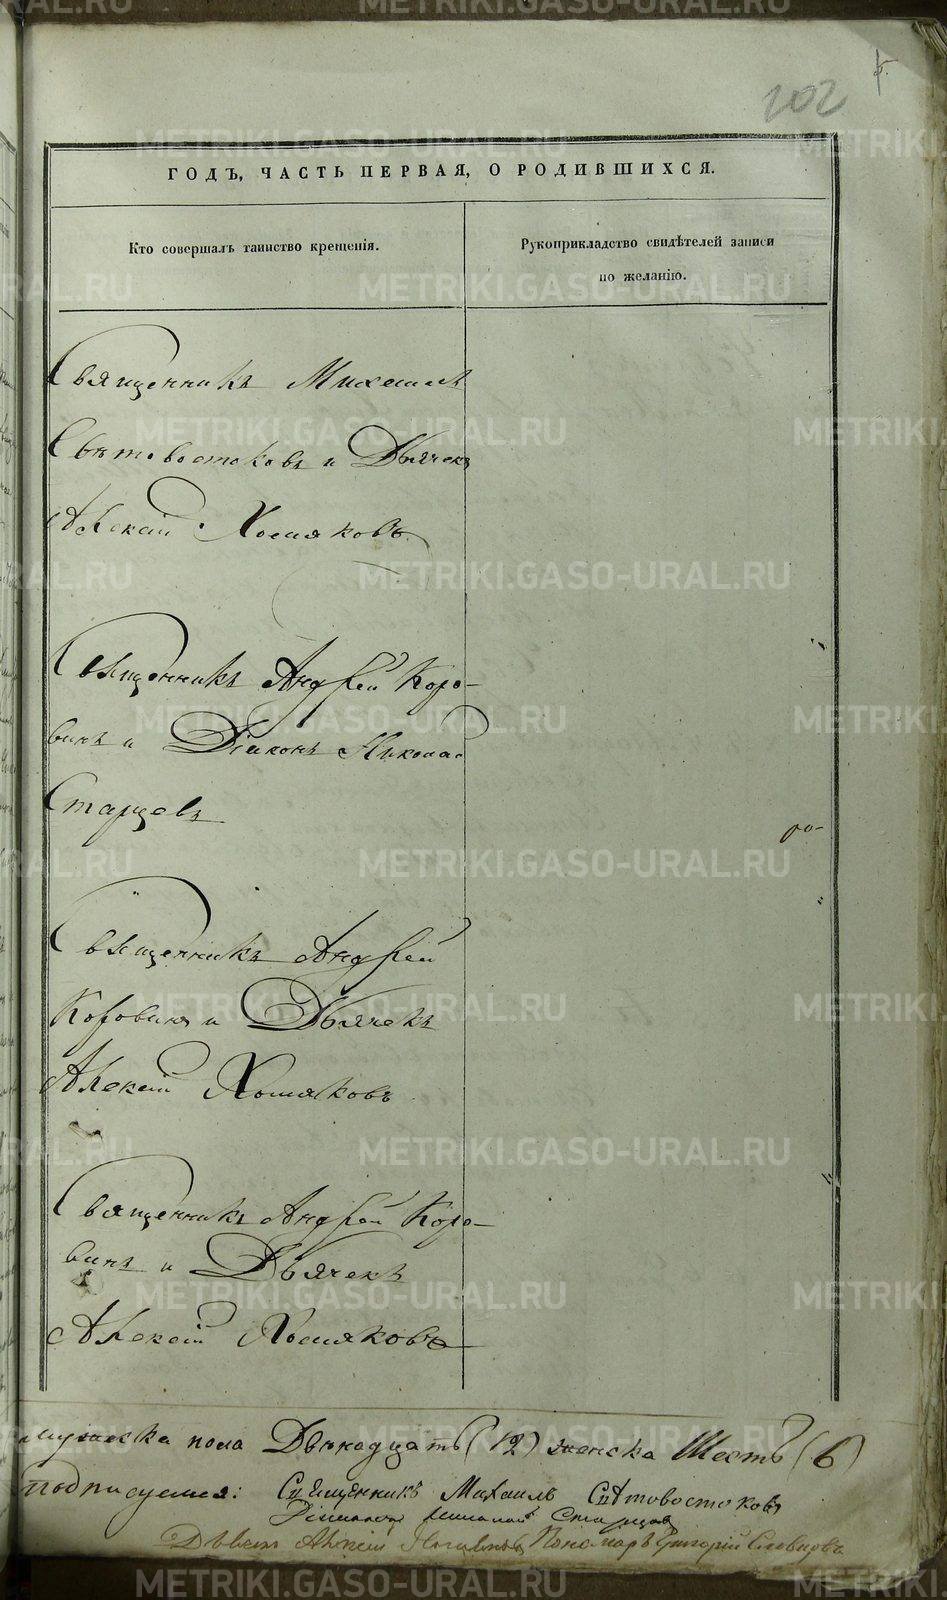 102
ГОДЪ, ЧАСТЬ ПЕРВАЯ, О РОДИВШИХСЯ.
Кто совершалъ таинство крещенія.
Рукоприкладство свидѣтелей записи
по желанію.
Священникъ Михаилъ
Свѣтовостоковъ и Дьячекъ
Алексій Хомяковъ.
Священникъ Андрей Коро-
винъ и Діаконъ Николай
Старцевъ
Священникъ Андрей
Коровинъ и Дьячекъ
Алексій Хомяковъ
Священникъ Андрей Коро-
винъ и Дьячекъ
Алексій Хомяковъ
мужеска пола Двѣнадцать (12) женска Шесть (6)
Подписуемся: Священникъ Михаилъ Свѣтовостоковъ
Діаконъ Николай Старцевъ
Алексій Хомяковъ Пономарь Григорій
METRIKI.GASO-URAL.RU